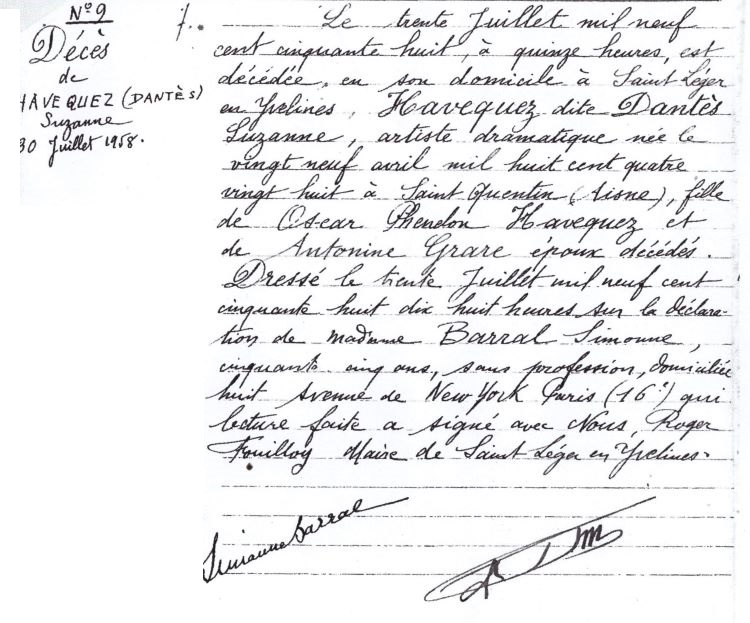 N°9
Décès
de
HAVEQUEZ (DANTÈS)
Suzanne
30 Juillet 1958.
7..
Le trente Juillet mil neuf
cent cinquante huit, à quinze heures, est
décédée, en son domicile à Saint Léger
en Yvelines, Havequez dite Dantès
Suzanne, artiste dramatique née le
vingt neuf avril mil huit cent quatre
vingt huit à Saint Quentin (Aisne), fille
de Oscar Phendon Havequez et
de Antonine Grare époux décédés.
Dressé le trente Juillet mil neuf cent
cinquante huit dix huit heures sur la déclara-
tion de madame Barral Simonne,
cinquante cinq ans, sans profession, domiciliée
huit Avenue de New York Paris (16e) qui
lecture faite a signé avec Nous, Roger
Fouilloy Maire de Saint Léger en Yvelines.
Simonne Barral